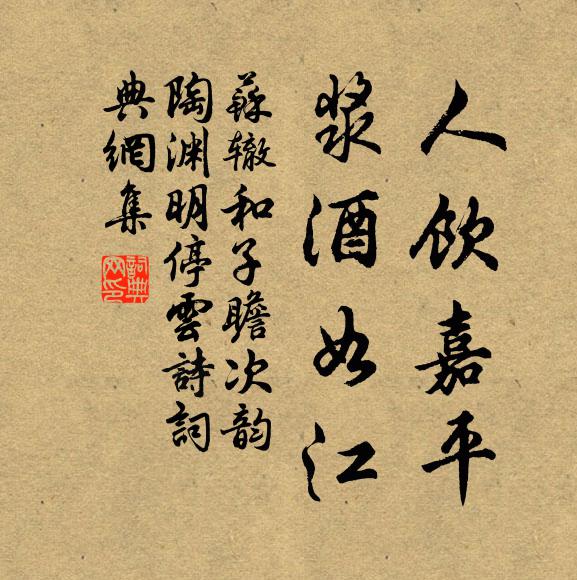 人飲嘉平
漿酒如江
蘇轍和子瞻次韵
陶渊明停雲詩詞
典網集
詞典網印